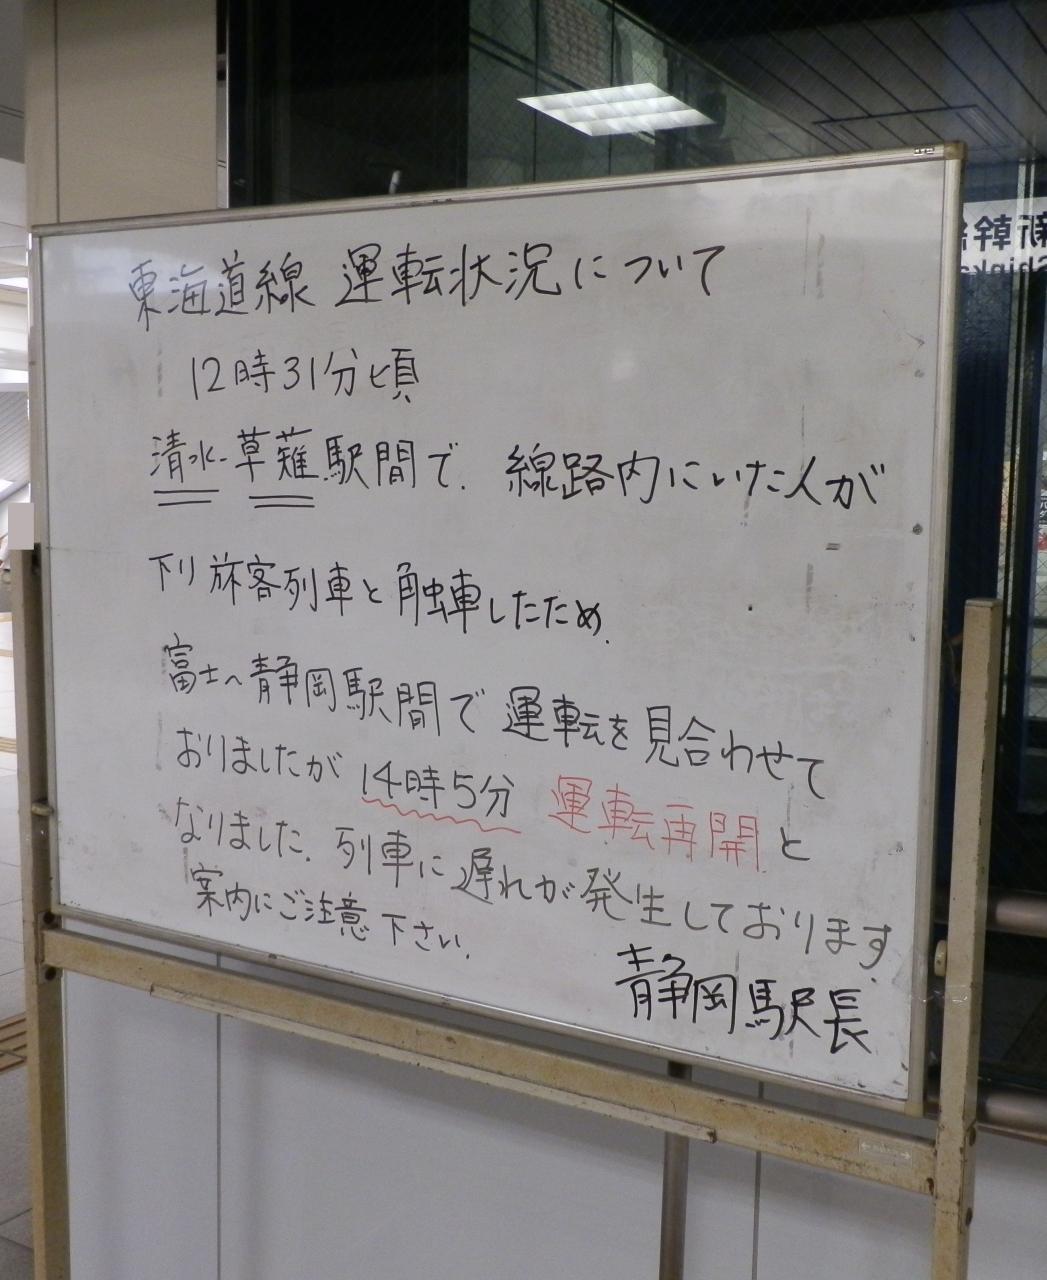 東海道線 運転状況について
12時31分頃
清水-草薙駅間で、線路内にいた人が
下り旅客列車と触車したため、
富士〜静岡駅間で運転を見合わせて
おりましたが 14時5分 運転再開と
なりました。列車に遅れが発生しております。
案内にご注意下さい。
静岡駅長
新幹